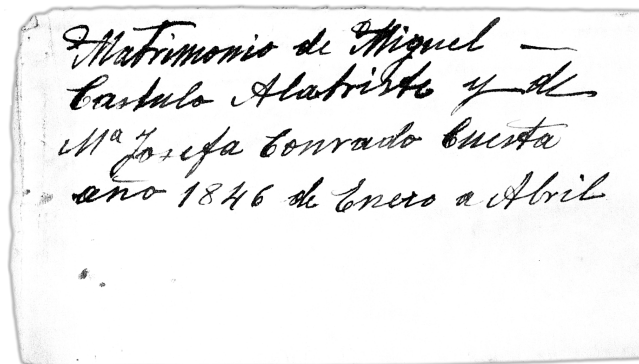 Matrimonio de Miguel —
Castulo Alatriste y de
Mª Josefa Conrado Cuesta
año 1846 de Enero a Abril